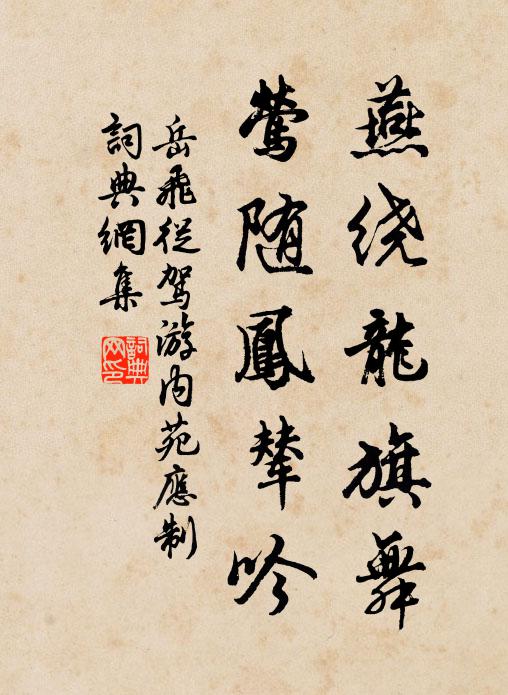 燕绕龍旗舞
莺随鳳輦吟
岳飛從駕游内苑應制
詞典網集
詞典網印